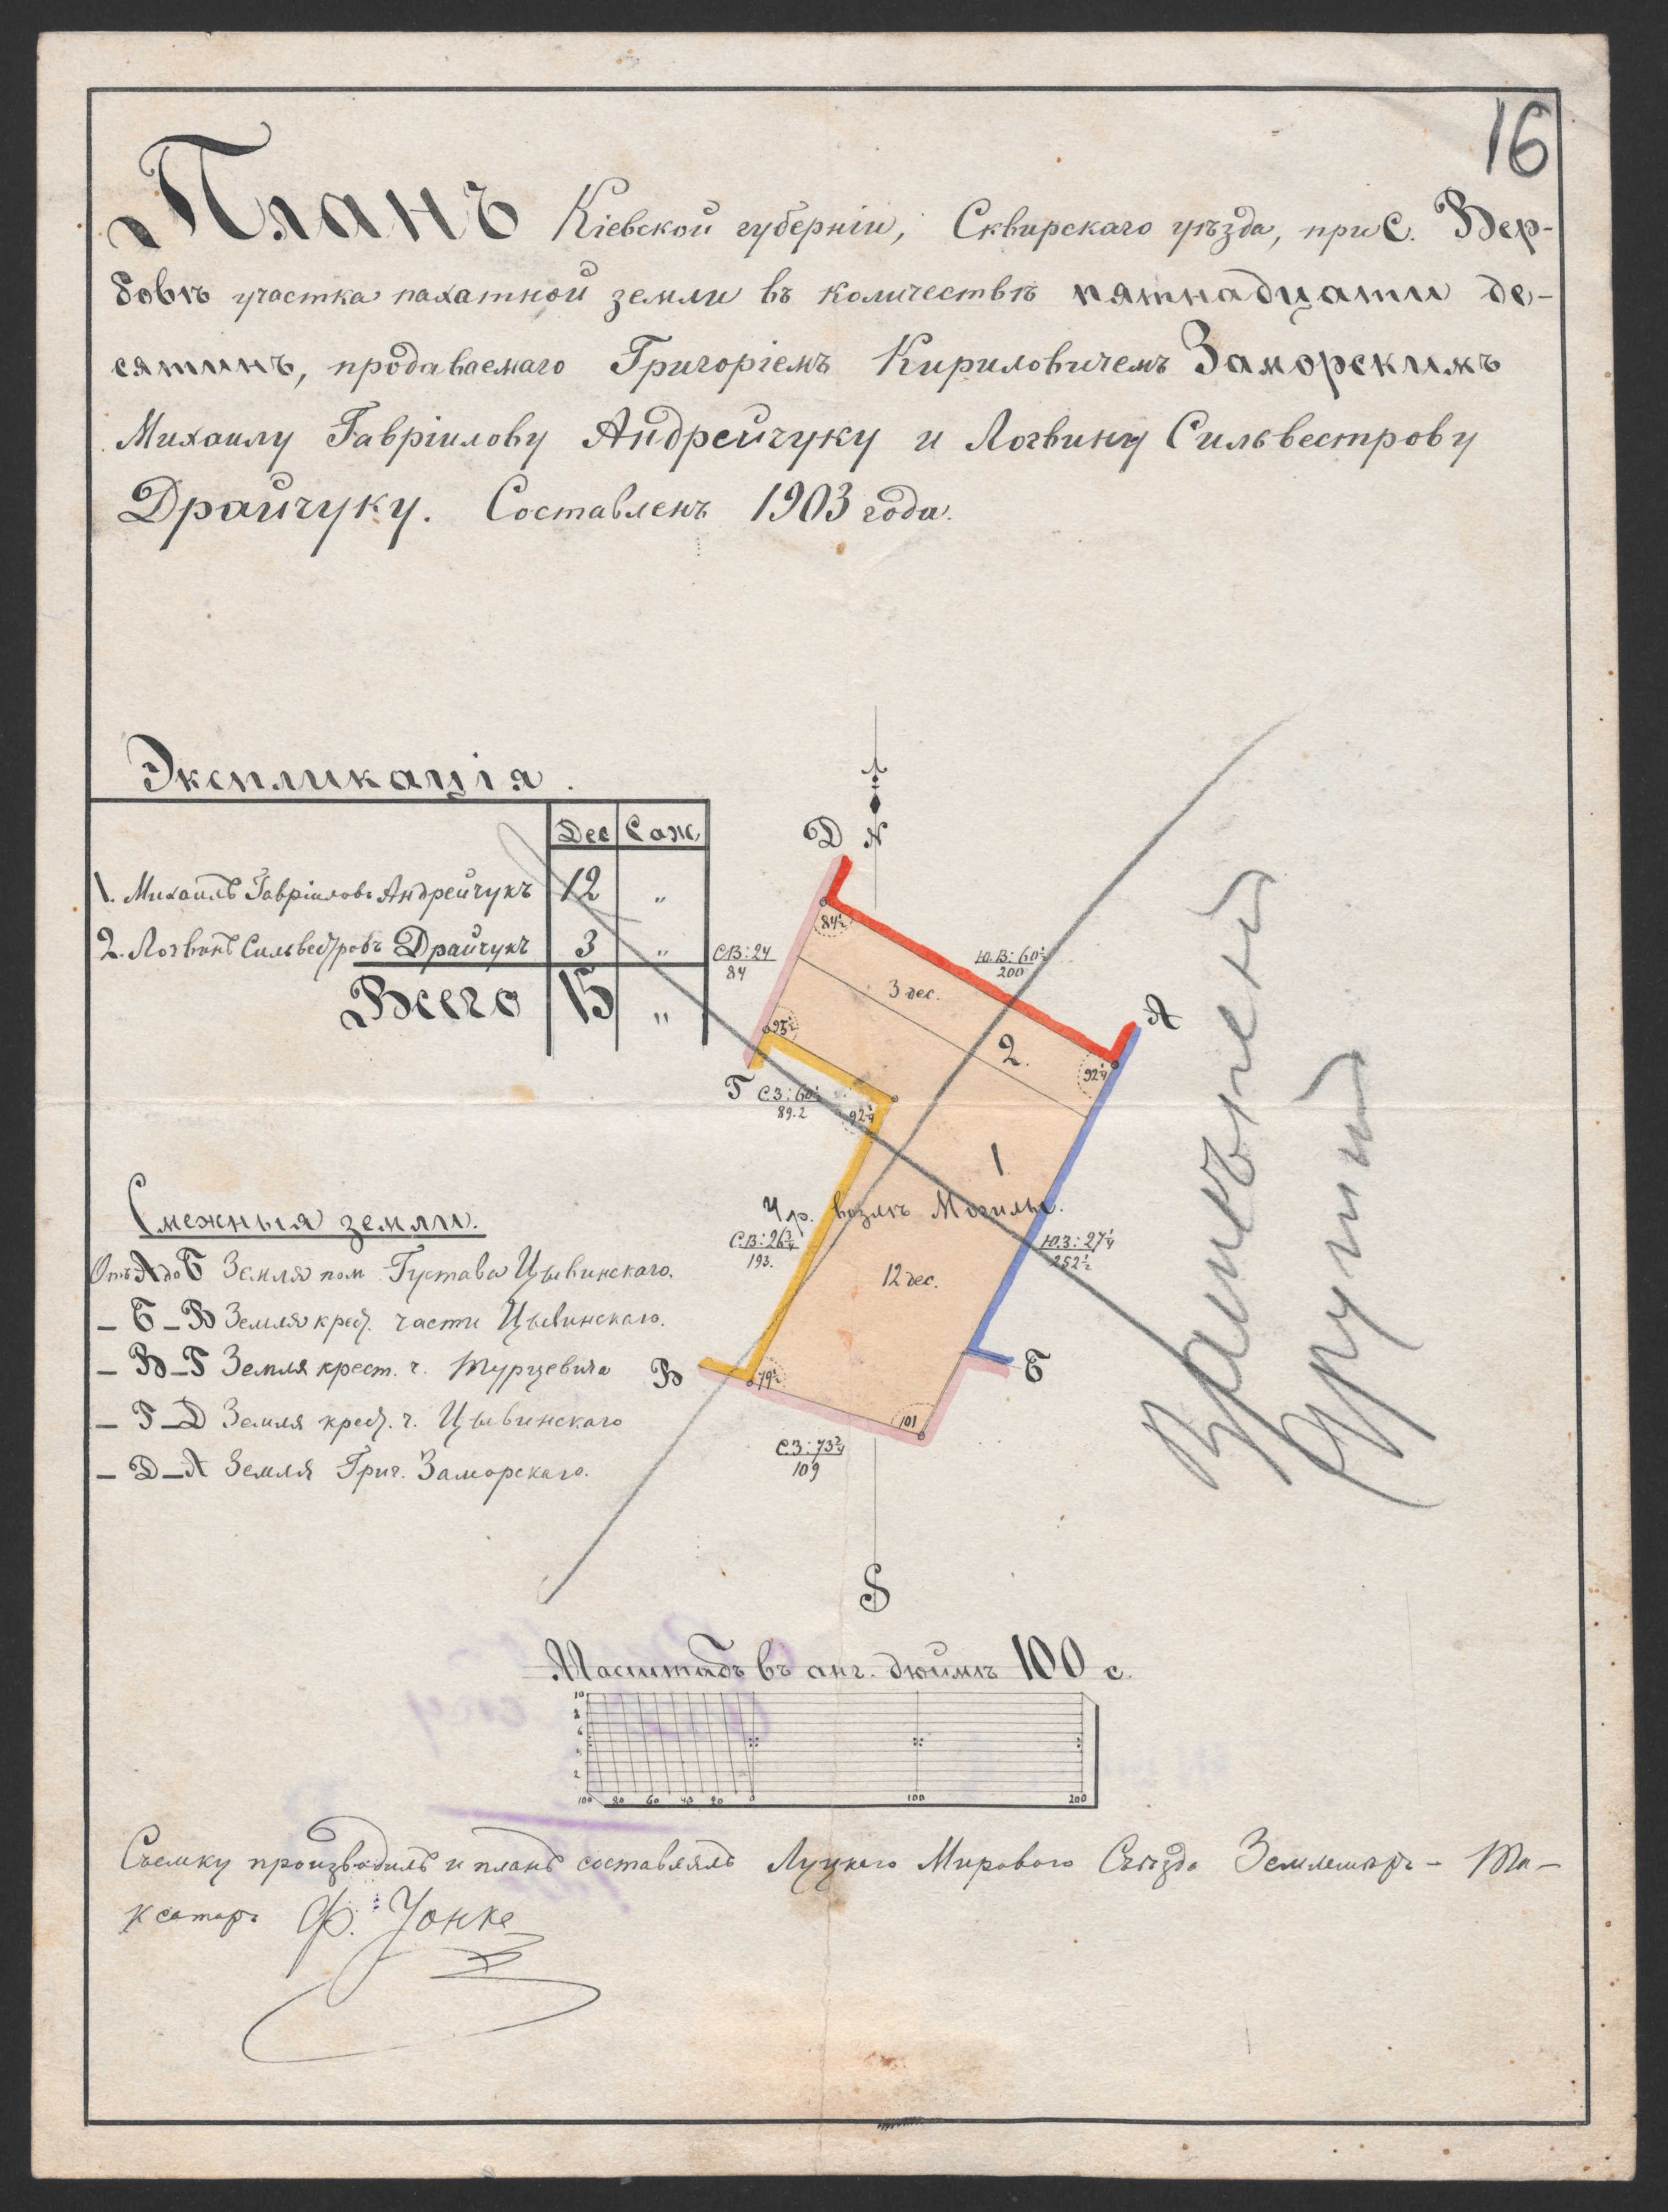 16
Планъ Кіевской губерніи, Сквирскаго уѣзда, при с. Вер-
бовкѣ участка пахатной земли въ количествѣ пятнадцати де-
сятинъ, продаваемаго Григоріемъ Кириловичемъ Заморскимъ
Михаилу Гавріилову Андрейчуку и Логвину Сильвестрову
Драйчуку. Составленъ 1903 года.
Экспликація.
Дес Саж
1. Михаилъ Гавріиловъ Андрейчукъ 12 "
2. Логвинъ Сильвестровъ Драйчукъ 3 "
Всего 15 "
N
Д
84½
С.В: 24
84
Ю.В: 60½
200
3 дес.
А
2
92¼
Г
С.З: 60½
89.2
92¼
1
Ур. возлѣ Могилы.
С.В: 26¾
193.
Ю.З: 27¼
252½
12 дес.
В
79½
Б
101
С.З: 73¾
109
S
Замѣненъ
другимъ
Смежныя земли.
Отъ А до Б Земля пом. Густава Цывинскаго.
— Б — В Земля крест. части Цывинскаго.
— В — Г Земля крест. ч. Турцевича
— Г — Д Земля крест. ч. Цывинскаго
— Д — А Земля Григ. Заморскаго.
Масштабъ въ анг. дюймѣ 100 с.
10
8
6
4
2
100 80 60 40 20 0 100 200
Съемку производилъ и планъ составлялъ Луцкаго Мирового Съѣзда Землемѣръ — Та-
ксаторъ Ф. Уонке